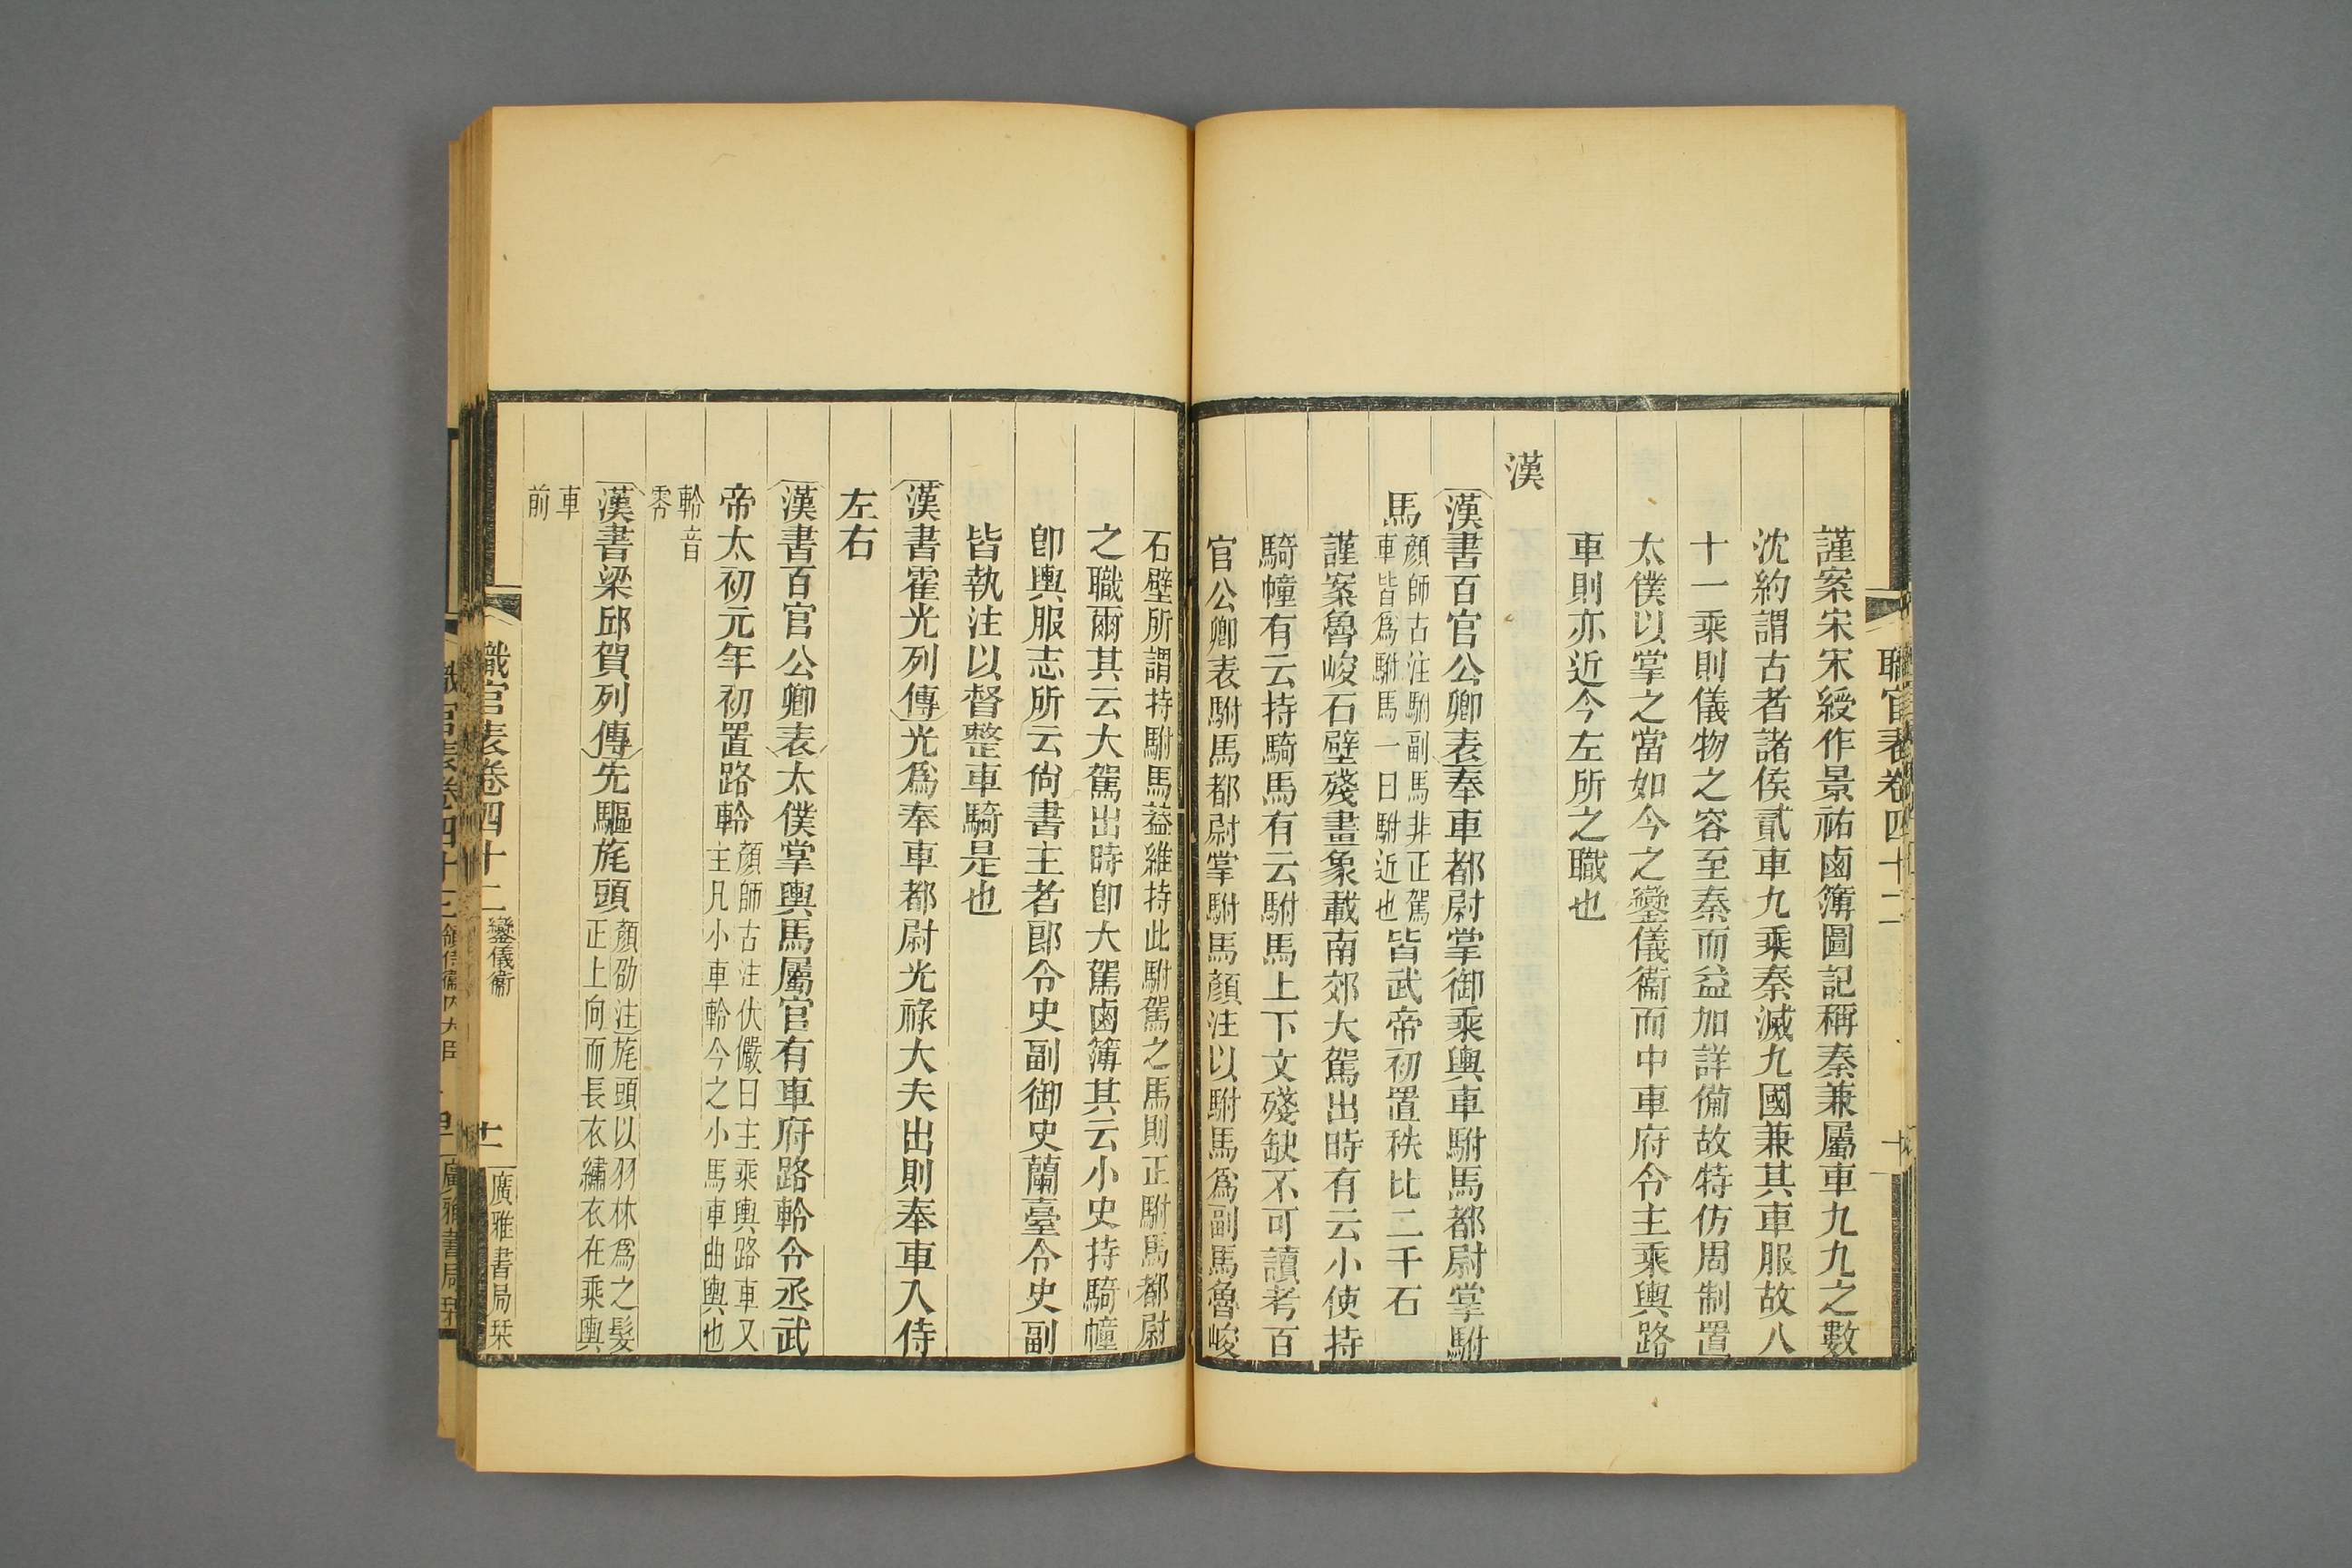 職官表卷四十二
十
謹案宋宋綬作景祐鹵簿圖記稱秦兼屬車九九之數
沈約謂古者諸侯貳車九乘秦滅九國兼其車服故八
十一乘則儀物之容至秦而益加詳備故特仿周制置
太僕以掌之當如今之鑾儀衞而中車府令主乘輿路
車則亦近今左所之職也
漢
漢書百官公卿表奉車都尉掌御乘輿車駙馬都尉掌駙
馬顏師古注駙副馬非正駕車皆爲駙馬一曰駙近也皆武帝初置秩比二千石
謹案魯峻石壁殘畫象載南郊大駕出時有云小使持
騎幢有云持騎馬有云駙馬上下文殘缺不可讀考百
官公卿表駙馬都尉掌駙馬顏注以駙馬爲副馬魯峻
石壁所謂持駙馬葢維持此駙駕之馬則正駙馬都尉
之職爾其云大駕出時卽大駕鹵簿其云小史持騎幢
卽輿服志所云尙書主者郞令史副御史蘭臺令史副
皆執注以督整車騎是也
漢書霍光列傳光爲奉車都尉光祿大夫出則奉車入侍
左右
漢書百官公卿表太僕掌輿馬屬官有車府路軨令丞武
帝太初元年初置路軨顏師古注伏儼曰主乘輿路車又主凡小車軨今之小馬車曲輿也
軨音零
漢書梁邱賀列傳先驅旄頭顏劭注旄頭以羽林爲之髮正上向而長衣繡衣在乘輿
車前
職官表卷四十二 鑾儀衞
十一
廣雅書局栞